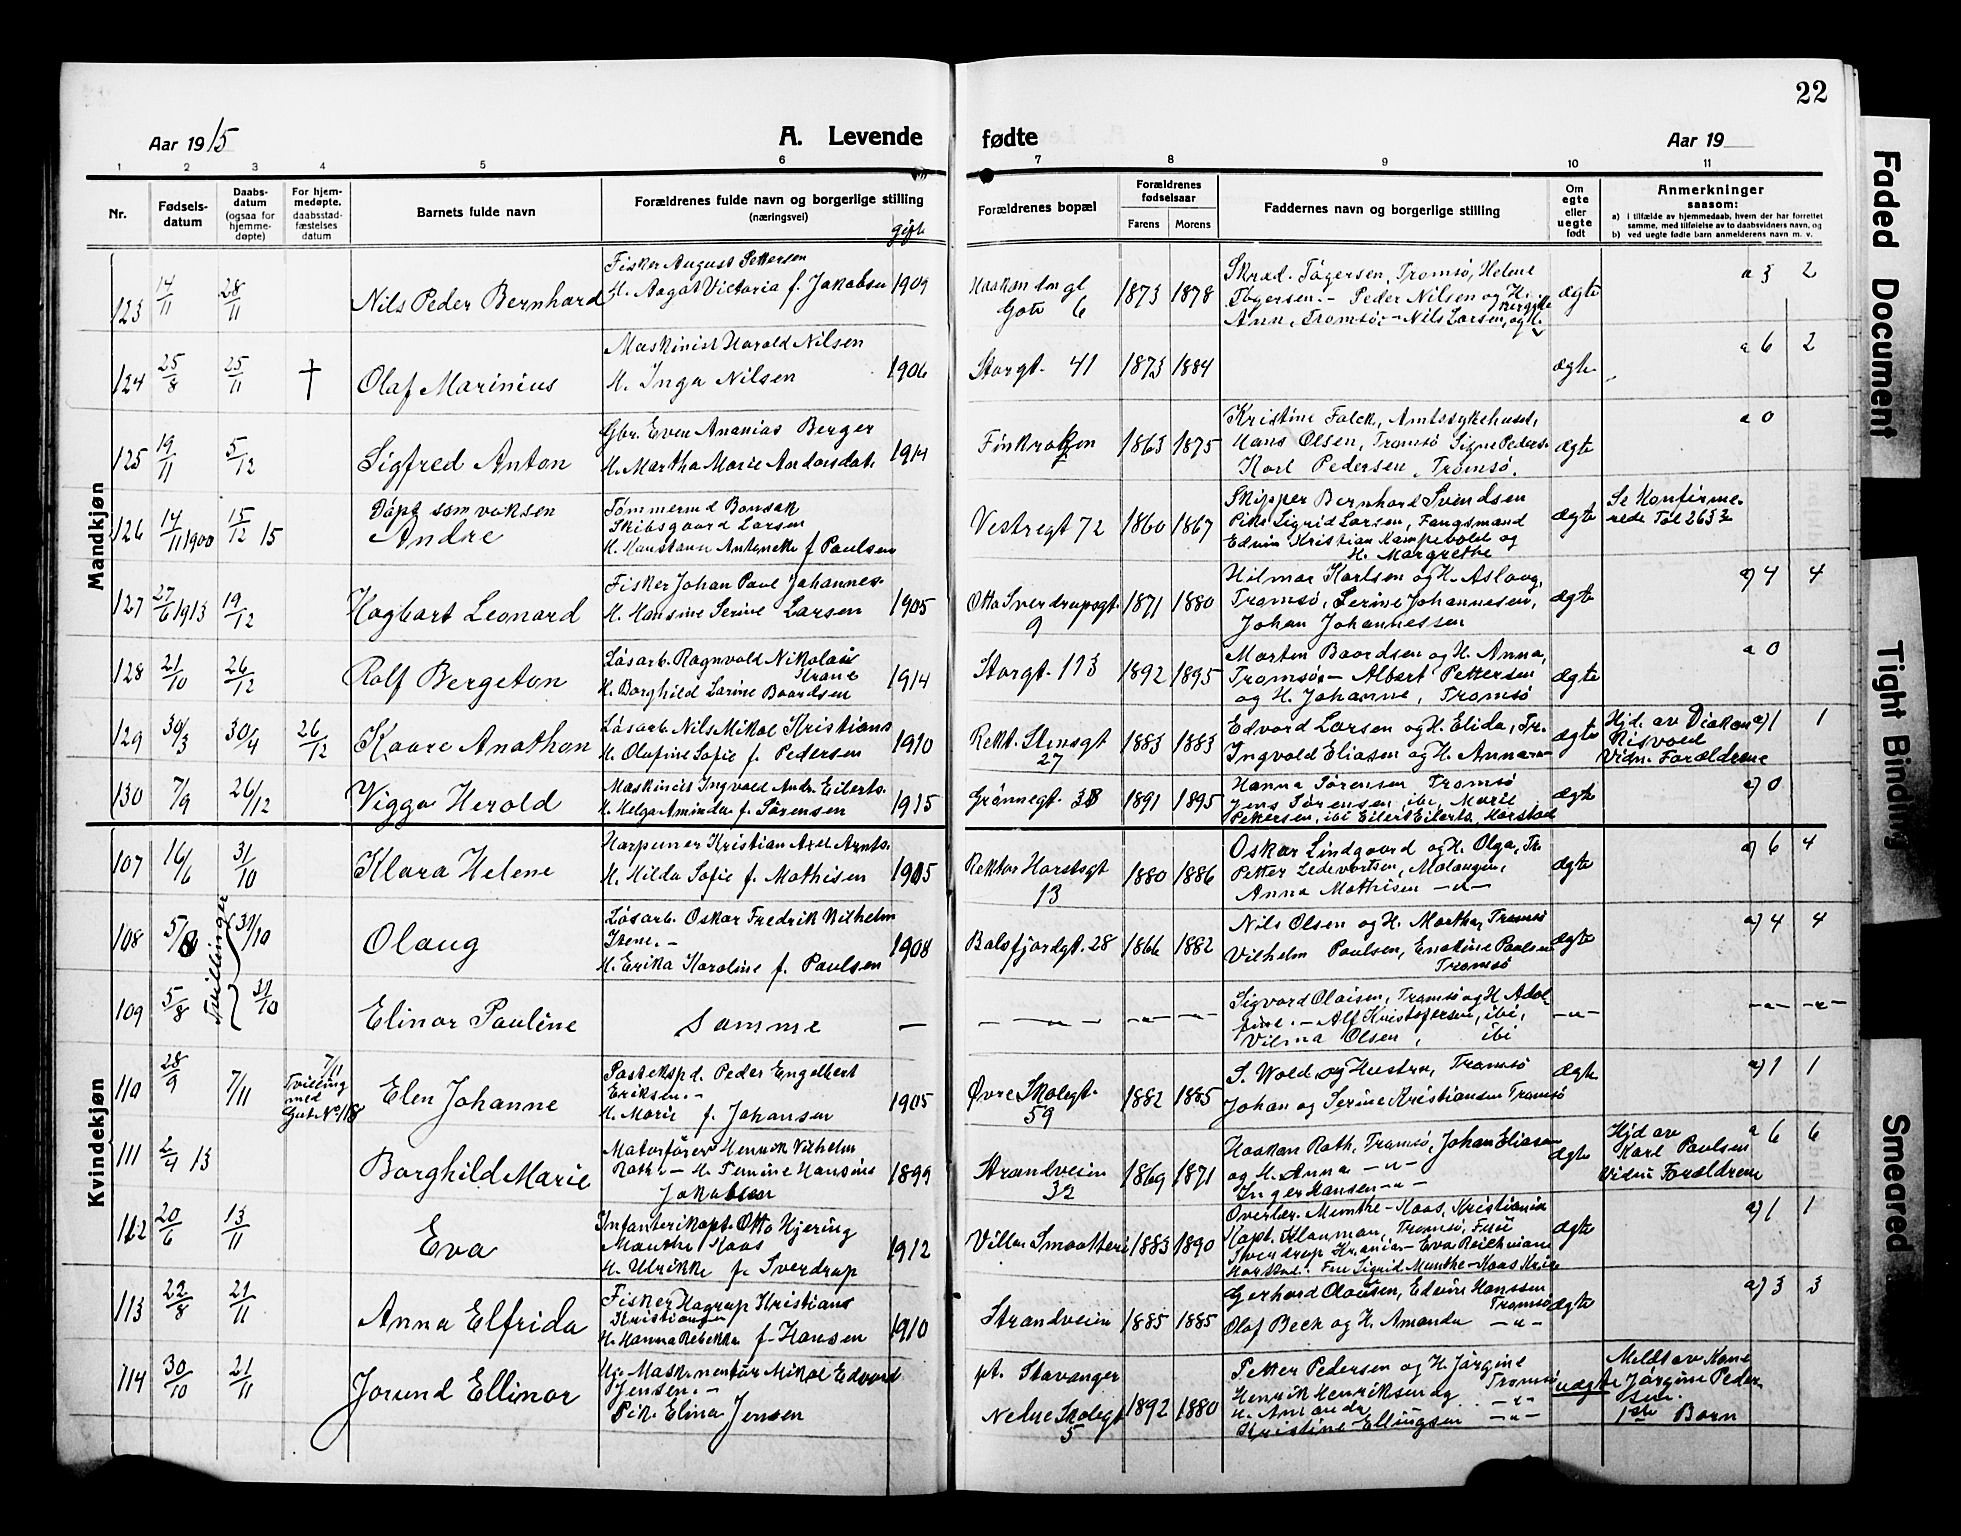 22
Aar 1915
A. Levende
fødte
Aar 19
1 2 3 4 5 6 7 8 9 10 11
Nr.
Fødsels-
datum
Daabs-
datum
(ogsaa for
hjemme-
døpte)
For hjem-
medøpte,
daabsstad-
fæstelses
datum
Barnets fulde navn
Forældrenes fulde navn og borgerlige stilling
(næringsvei)
gift
Forældrenes bopæl
Forældrenes
fødselsaar
Farens Morens
Faddernes navn og borgerlige stilling
Om
egte
eller
uegte
født
Anmerkninger
saasom:
a) i tilfælde av hjemmedaab, hvem der har forrettet
samme, med tilføielse av to daabsvidners navn, og
b) ved uegte fødte barn anmelderens navn m. v.
Mandkjøn
123 14/11 28/11 Nils Peder Bernhard
Fisker August Pettersen
H. Aagot Victoria f. Jakobsen 1909
6 1873 1878
Skræd. Tøgersen, Tromsø, Helene
Tøgersen.- Peder Nilsen og H.
Ann, Tromsø,- Nils Larsen, og H.
ægte a 3 2
124 25/8 25/11 † Olaf Marinius
Maskinist Harald Nilsen
H. Inga Nilsen 1906
Storgt. 41 1873 1884
ægte a 6 2
125 19/11 5/12 Sigfred Anton
Gbr. Even Ananias Berger
H. Martha Marie Andorsdat. 1914
Finkroken 1863 1875
Kristine Falck, Amtssykehuset,
Hans Olsen, Tromsø Signe Peders.
Karl Pedersen, Tromsø.
ægte a 0
126 14/11 1900 15/12 15 Døpt som voksen
Andre
Tømmermd Bonsak
Skibsgaard Larsen
H. Antonette f Paulsen
Vestregt 72 1860 1867
Skipper Bernhard Svendsen
Pike Sigrid Larsen, Fangsmand
Edvin Kristian Kampevold og
H. Margrethe
ægte Se Konfirme-
rede
127 27/6 1913 19/12 Hagbart Leonard
Fisker Johan Paul Johannes.
H. Hansine Serine Larsen 1905
Otto Sverdrupsgt.
9 1871 1880
Hilmar Karlsen og H. Aslaug,
Tromsø, Serine Johannesen,
Johan Johannessen
ægte a) 4 4
128 21/10 26/12 Rolf Bergeton
Løsarb. Ragnvold Nikolai
Strand
H. Borghild Larine Baardsen 1914
Storgt. 113 1892 1895
Morten Baardsen og H. Anna,
Tromsø:- Albert Pettersen
og H. Johanne, Tromsø
ægte a 0
129 30/3 30/4 26/12 Kaare Anathon
Løsarb. Nils Mikal Kristians
H. Olufine Sofie f. Pedersen 1910
Rekt. Stensgt
27 1883 1883
Edvard Larsen og H. Elida, Tr.
Ingvald Eliasen og H. Anna -"-
ægte Hjd. av Diakon
Risvold
Vidn. Forældrene a) 1 1
130 7/9 26/12 Viggo Herold
Maskinist Ingvald Andr. Eilerts.
H. Helga Aminda f. Sørensen 1915
Grønnegt. 38 1891 1895
Hanna Sørensen Tromsø
Jens Sørensen, ibi, Marie
Pettersen, ibi Eilert Eilerts, Harstad
ægte a) 0
Kvindekjøn
107 16/6 31/10 Klara Helene
Harpuner Kristian Axel Arnts.
H. Hilda Sofie f. Mathisen 1905
Rektor Horstsgt
13 1880 1886
Oskar Lindgaard og H. Olga, Tr.
Petter Zedevartsen, Malangen,
Anna Mathisen -"-
ægte a) 6 4
108 5/8 Tvillinger 31/10 Olaug
Løsarb. Oskar Fredrik Vilhelm
H. Erika Karoline f. Paulsen 1908
Balsfjordgt. 28 1866 1882
Nils Olsen og H. Martha, Tromsø
Vilhelm Paulsen, Enokine Paulsen
Tromsø
ægte a) 4 4
109 5/8 31/10 Elinor Pauline
Samme —
- "- -"- -"-
Sigvard Olaisen, Tromsø og H Adol-
fine.- Alf Kristoffersen, ibi,
Vilma Olsen, ibi
-"- -"- -"-
110 28/9 7/11 7/11
Tvilling
med
Gut No 118
Elen Johanne
Postekspd. Peder Engelbert
Eriksen.-
H. Marie f. Johansen 1905
Øvre Skolegt.
59 1882 1885
S. Wold og Hustru, Tromsø
Johan og Serine Kristiansen Tromsø
ægte a) 1 1
111 2/4 13 Borghild Marie
Motorfører Henrik Vilhelm
Rath.- H. Hansine
Jakobsen 1899
Strandveien
32 1869 1871
Haakon Rath, Tromsø, Johan Eliasen
og H. Anna -"-
Inger Hansen -"-
ægte Hjd av
Karl Paulsen
Vidn: Forældrene a 6 6
112 20/6 13/11 Eva
Infanterikapt. Otto Hjering
Munthe Kaas
H. Ulrikke f. Sverdrup 1912
Villa 1883 1890
Overlær. Munthe-Kaas, Kristiania
Kapt. Klauman, Tromsø, Frue
Sverdrup Krania- Eva Reichman
Harstad: Fru Sigrid Munthe-Kaas Kria
ægte a) 1 1
113 22/8 21/11 Anna Elfrida
Fisker Hagrup Kristians
Kristiansen
H. Hanna Rebekka f. Hansen 1910
Strandveien 1885 1885
Gerhard Olausen, Edvine Hanssen
Tromsø
Olaf Beck og H. Amanda -"-
ægte a) 3 3
114 30/10 21/11 Jorund Ellinor
Ug. Maskmontør Mikal Edvard
Jensen.-
Pik. Elina Jensen
pt. Stavanger
Nedre Skolegt
5 1892 1880
Petter Pedersen og H. Jørgine
Tromsø
Henrik Henriksen og
H. Amanda -"-
Kristine Ellingsen -"-
uægte Meldt av Kone
Jørgine Peder-
sen.
1ste Barn
Faded Document
Tight Binding
Smeared